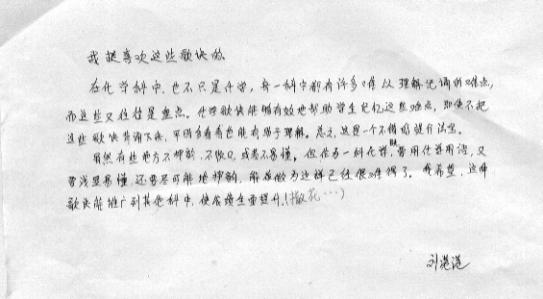 我挺喜欢这些歌诀的
在化学科中,也不只是化学,每一科中都有许多难以理解记诵的难点,
而这些又往往是重点。化学歌诀能够有效地帮助学生记忆这些难点,即使不把
这些歌诀背诵下来,平时多看看也能有助于理解。总之,这是一个不错的提分法宝。
虽然有些地方不押韵,不顺口,或者不易懂,但作为一科化学,要用化学用语,又
要浅显易懂,还要尽可能地押韵,能做为这样已经很难得了。我希望,这种
歌诀能推广到其他科中,使成绩全面提升!(撒花…)
刘港港